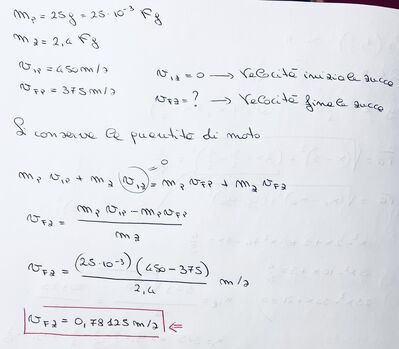 m_P = 25g = 25·10⁻³ Kg
m_z = 2,4 Kg
v_iP = 450 m/s v_iz = 0 → Velocità iniziale zucca
v_FP = 375 m/s v_Fz = ? → Velocità finale zucca
Si conserva la quantità di moto
m_P v_iP + m_z (v_iz)⁼⁰ = m_P v_FP + m_z v_Fz
v_Fz = (m_P v_iP - m_P v_FP) / m_z
v_Fz = (25·10⁻³)(450 - 375) / 2,4 m/s
v_Fz = 0,78125 m/s ⇐